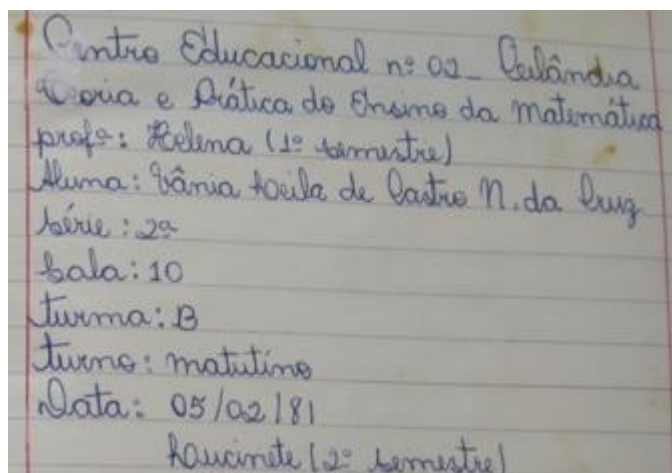 Centro Educacional nº 02 - Ceilândia
Teoria e Prática do Ensino da Matemática
profª: Helena (1º semestre)
Aluna: Vânia Leila de Castro N. da Cruz
série: 2ª
sala: 10
turma: B
turno: matutino
Data: 05/02/81
Laucinete (2º semestre)